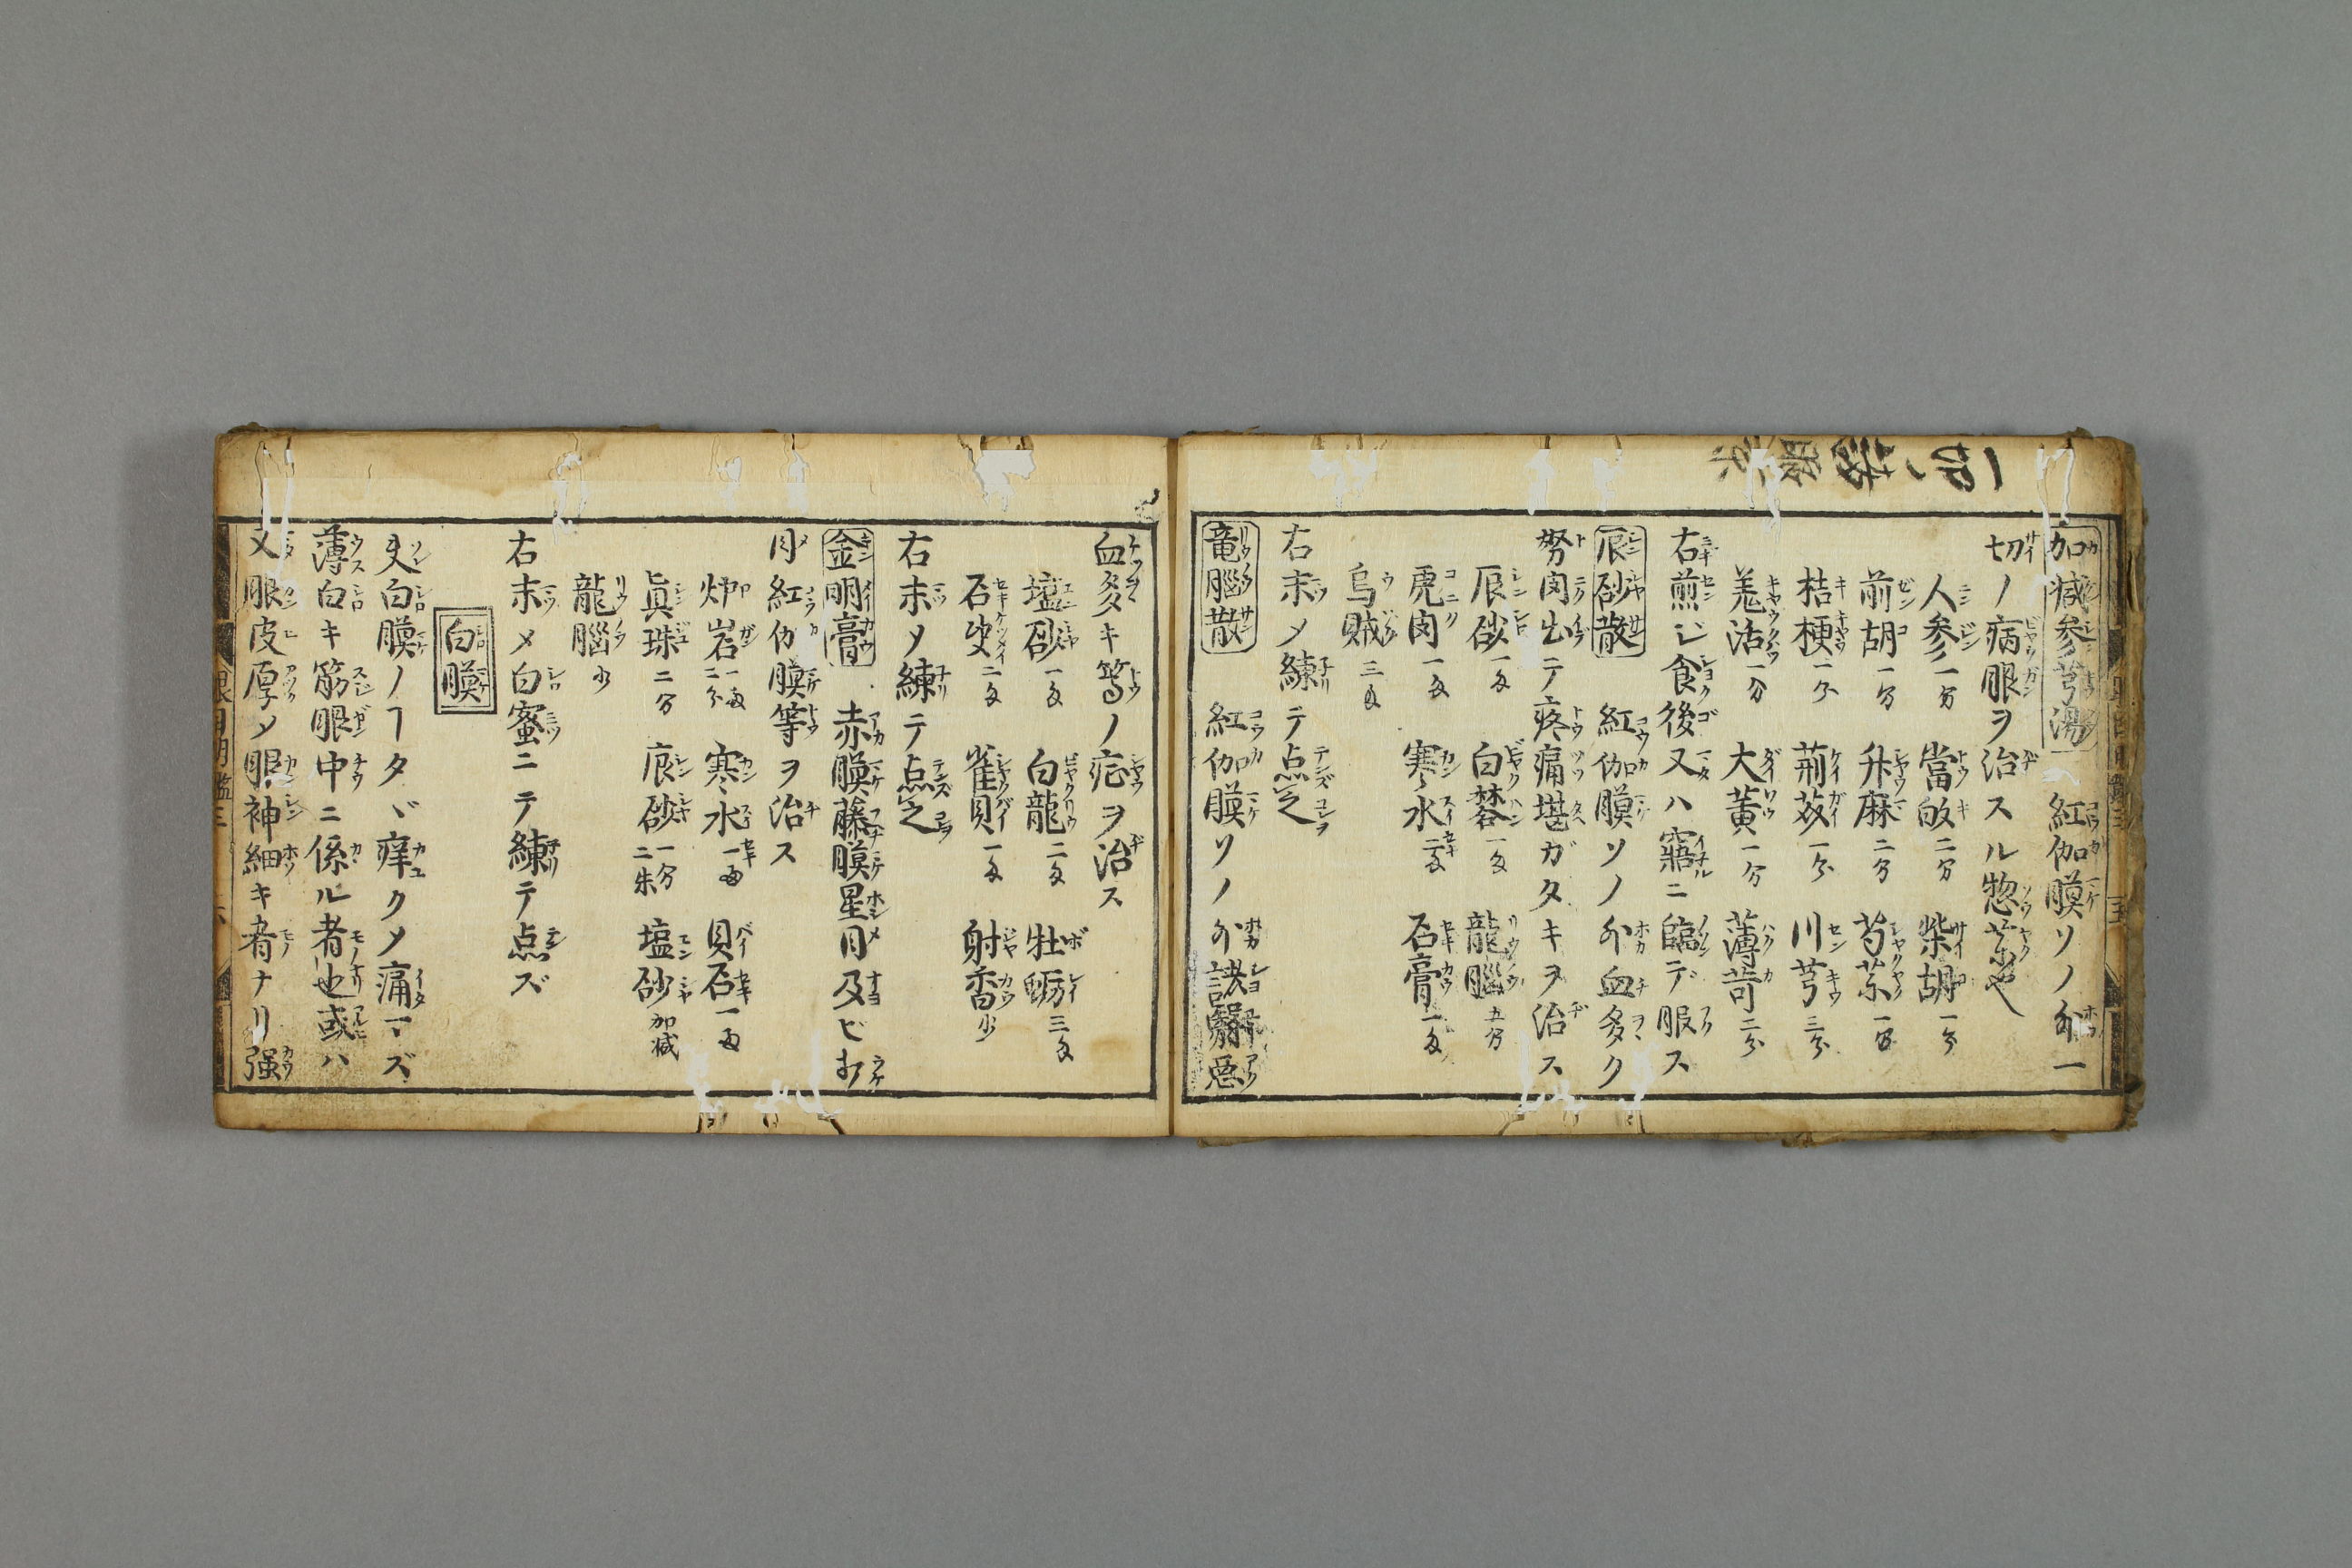 加減参芎湯 紅伽膜ソノ外一
切ノ病眼ヲ治スル惣薬也
人参一分 當皈二分 柴胡一分
前胡一分 升麻二分 芍薬一分
桔梗一分 荊芥一分 川芎三分
羌活一分 大黄一分 薄苛二分
右煎ジ食後又ハ寤ニ臨デ服ス
辰砂散 紅伽膜ソノ外血多ク
努肉出テ疼痛堪ガタキヲ治ス
辰砂一匁 白礬一匁 龍脳五分
虎肉一匁 寒水二匁 石膏一匁
烏賊三匁
右末メ練テ点之
竜脳散 紅伽膜ソノ外諸翳悪
血多キ等ノ症ヲ治ス
塩砂一匁 白龍二匁 牡蛎三匁
石決二匁 雀貝一匁 射香少
右末メ練テ点之
金明膏 赤膜藤膜星目及ビ打
目紅伽膜等ヲ治ス
炉岩一匁二分 寒水一匁 貝石一匁
眞珠二分 辰砂一分二朱 塩砂加減
龍脳少
右末メ白蜜ニテ練テ点ズ
白膜
夫白膜ノヿタヾ痒クメ痛マズ
薄白キ筋眼中ニ係ル者也或ハ
又眼皮厚メ眼神細キ者ナリ強